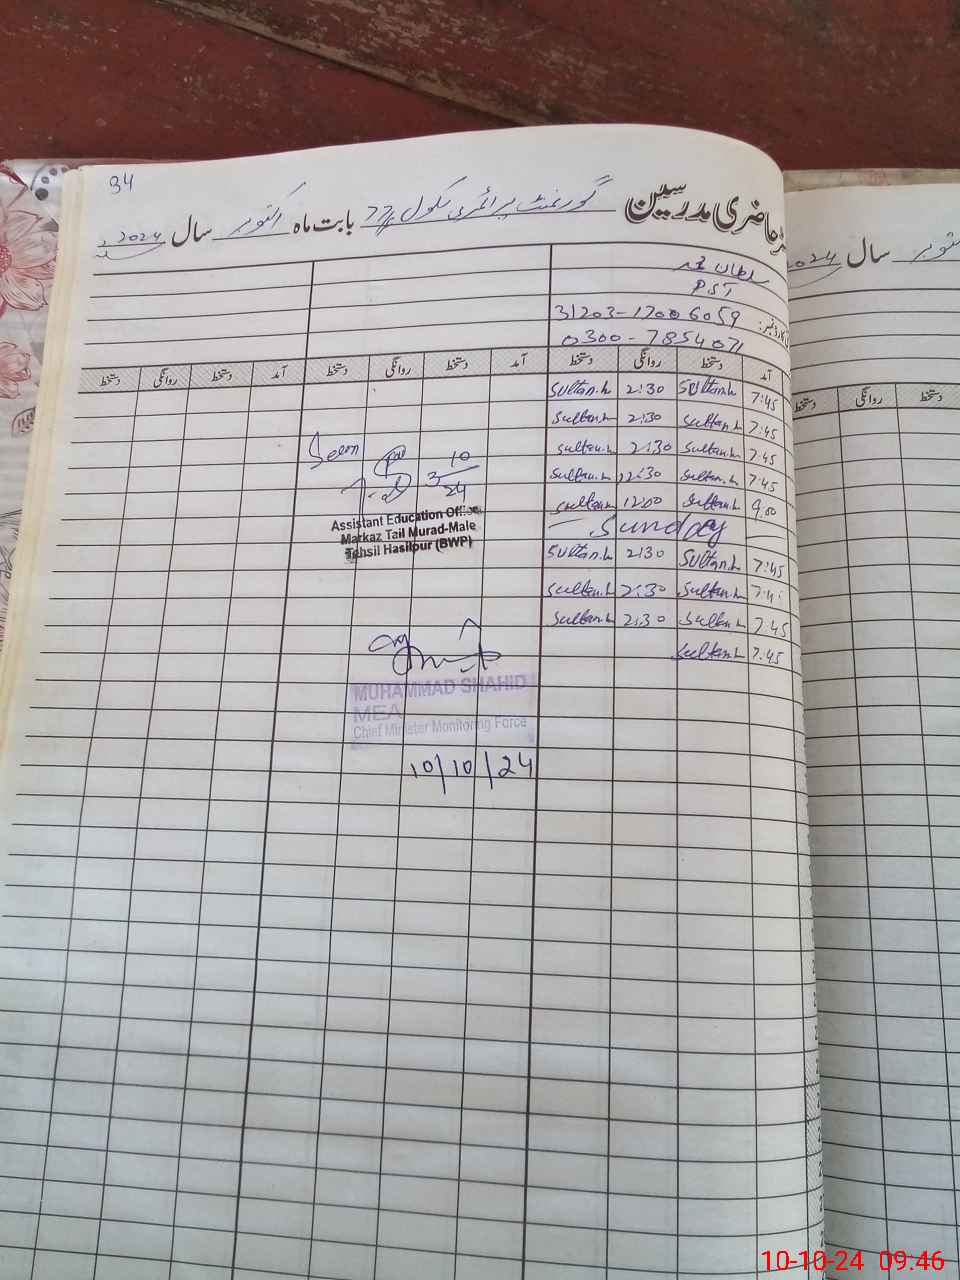 34
حاضری مدرسین گورنمنٹ پرائمری سکول 77 بابت ماہ اکتوبر سال 2024
سلطان احمد
PST
31203-17006059
0300-7854071
آمد دستخط روانگی دستخط آمد دستخط روانگی دستخط آمد دستخط روانگی دستخط
7:45 Sultan.h 2:30 Sultan.h
7:45 Sultan.h 2:30 Sultan.h
7:45 Sultan.h 2:30 Sultan.h
7:45 Sultan.h 12:30 Sultan.h
9:00 Sultan.h 12:00 Sultan.h
— Sunday —
7:45 Sultan.h 2:30 Sultan.h
7:45 Sultan.h 2:30 Sultan.h
7:45 Sultan.h 2:30 Sultan.h
7:45 Sultan.h
Seen
3/10/24
Assistant Education Officer
Markaz Tail Murad-Male
Tehsil Hasilpur (BWP)
MUHAMMAD SHAHID
MEA
Chief Minister Monitoring Force
10/10/24
سال 2024
دستخط روانگی دستخط
10-10-24 09.46